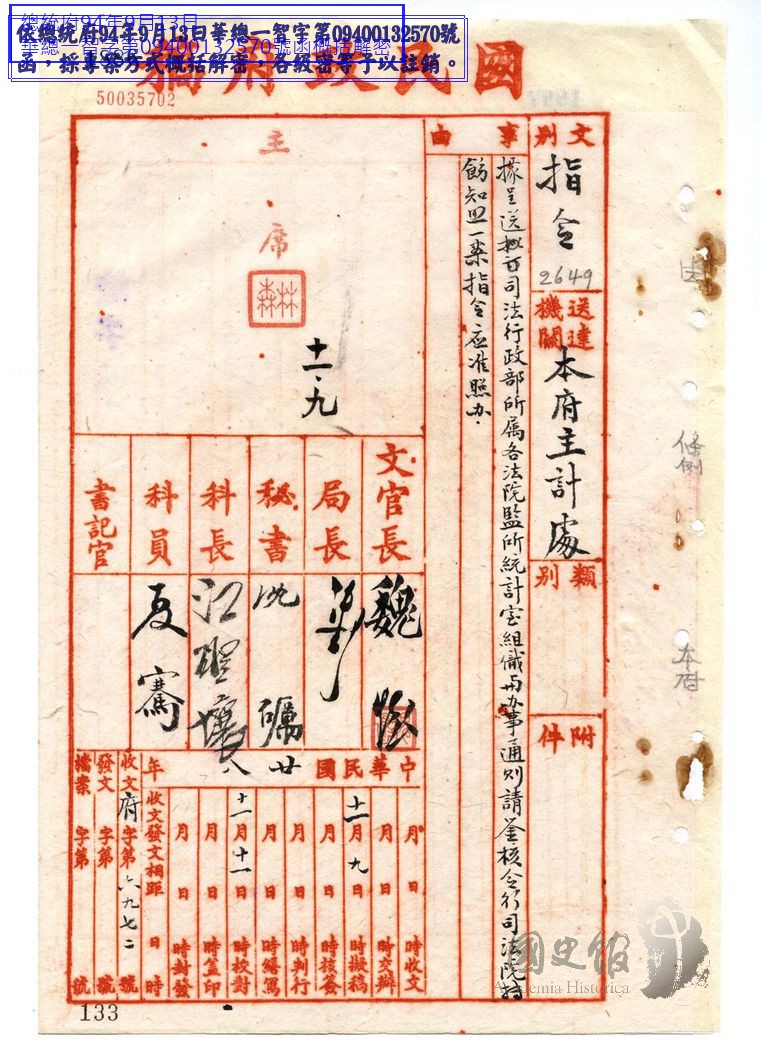 總統府94年9月13日
華總一智字第09400132570號函概括解密
依總統府94年9月13日華總一智字第09400132570號
函，採專案方式概括解密，各級密等予以註銷。
國民政府稿
50035702
文別
指令
2649
送達機關
本府主計處
類別
附件
事由
據呈送 司法行政部所屬各法院監所統計室組織与办事通則請鉴核令行司法院轉
飭知照一案指令应准照办.
主席
林森
十一、九
文官長
魏
局長
秘書
沈礪
科長
江
科員
夏騫
書記官
中華民國廿 年
月 日 時收文
月 日 時交辦
十一月九日 時擬稿
月 日 時核簽
月 日 時判行
月 日 時繕寫
十一月十一日 時校對
月 日 時蓋印
月 日 時封發
收文發文相距 日 時
收文府字第六九七二號
發文 字第 號
檔案 字第 號
條例
本府
133
國史館
Academia Historica